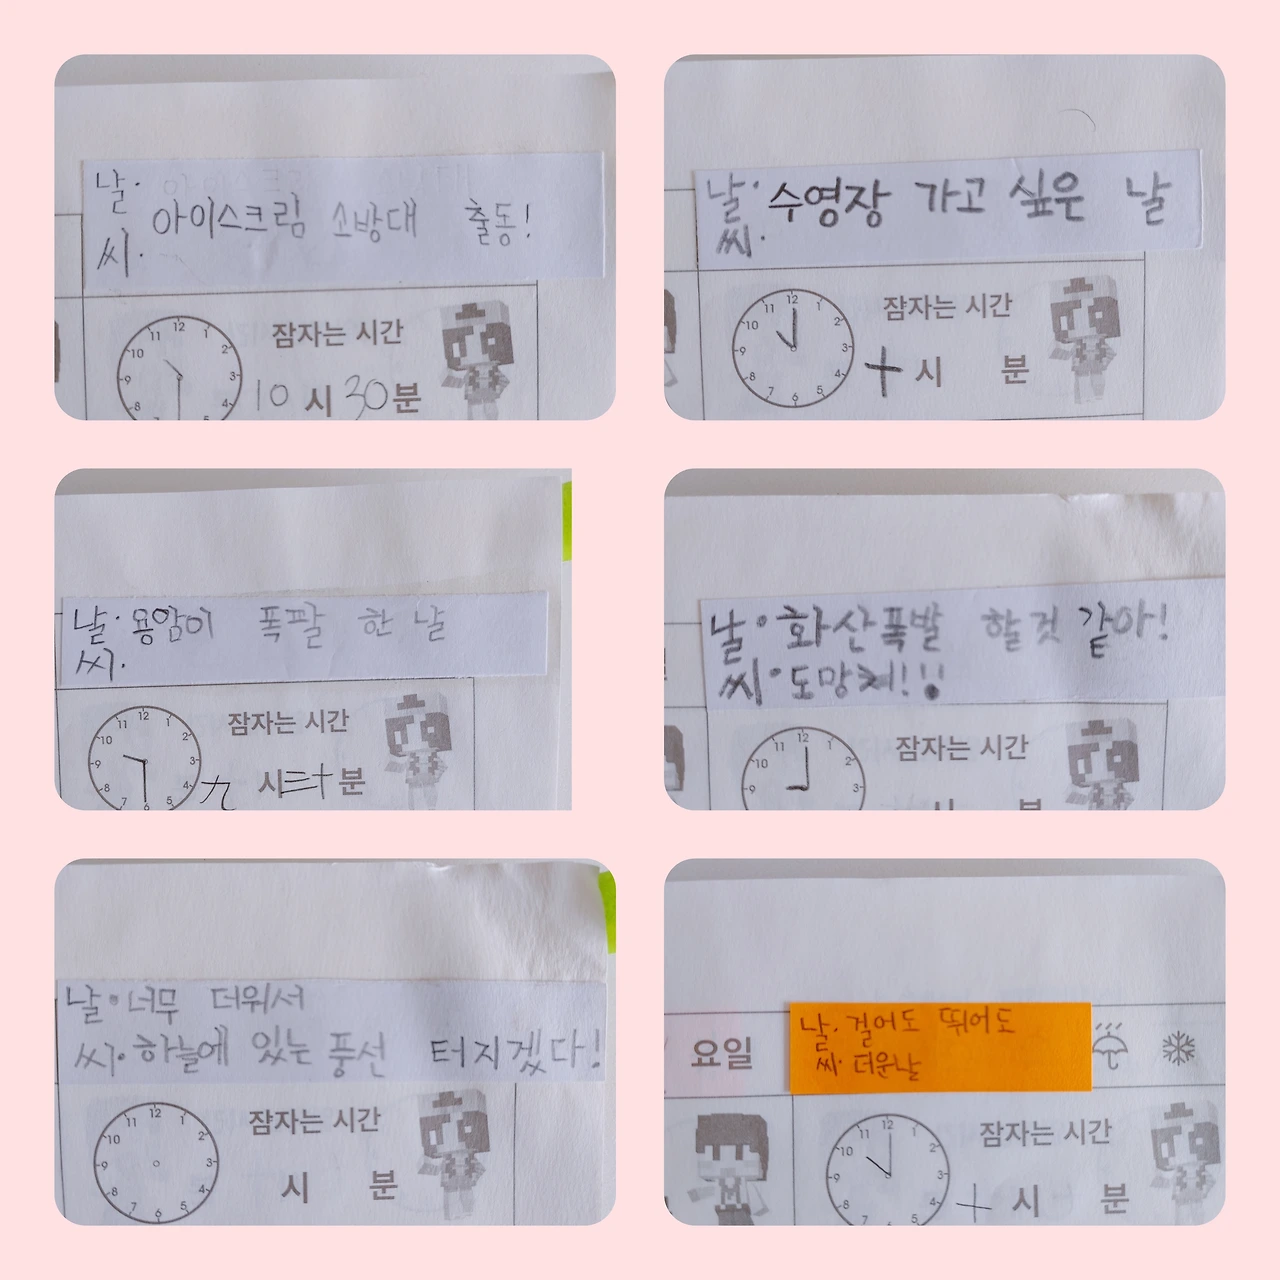 날. 아이스크림 소방대 출동!
씨.
12 1 2 3 4 8 9 10 11
잠자는 시간
10 시 30 분
날. 수영장 가고 싶은 날
씨.
12 1 2 3 4 5 6 7 8 9 10 11
잠자는 시간
十 시 분
날. 용암이 폭팔 한 날
씨.
12 1 2 3 4 5 6 7 8 9 10 11
잠자는 시간
九 시 三十 분
날. 화산폭발 할것 같아!
씨. 도망쳐!!!
12 1 2 3 9 10 11
잠자는 시간
날. 너무 더워서
씨. 하늘에 있는 풍선 터지겠다!
12 1 2 3 4 5 6 7 8 9 10 11
잠자는 시간
시 분
요일
날. 걸어도 뛰어도
씨. 더운날
12 1 2 3 4 5 6 7 8 9 10 11
잠자는 시간
十 시 분